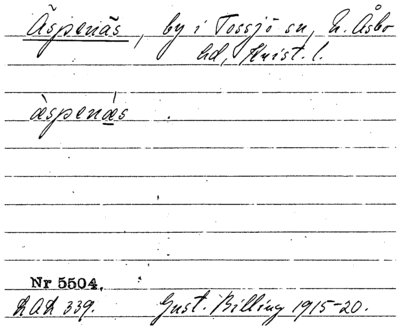 Äspenäs, by i Tossjö sn, N. Åsbo
hd, Krist. l.
àspenǽs.
Nr 5504.
LAL 339. Gust. Billing 1915-20.